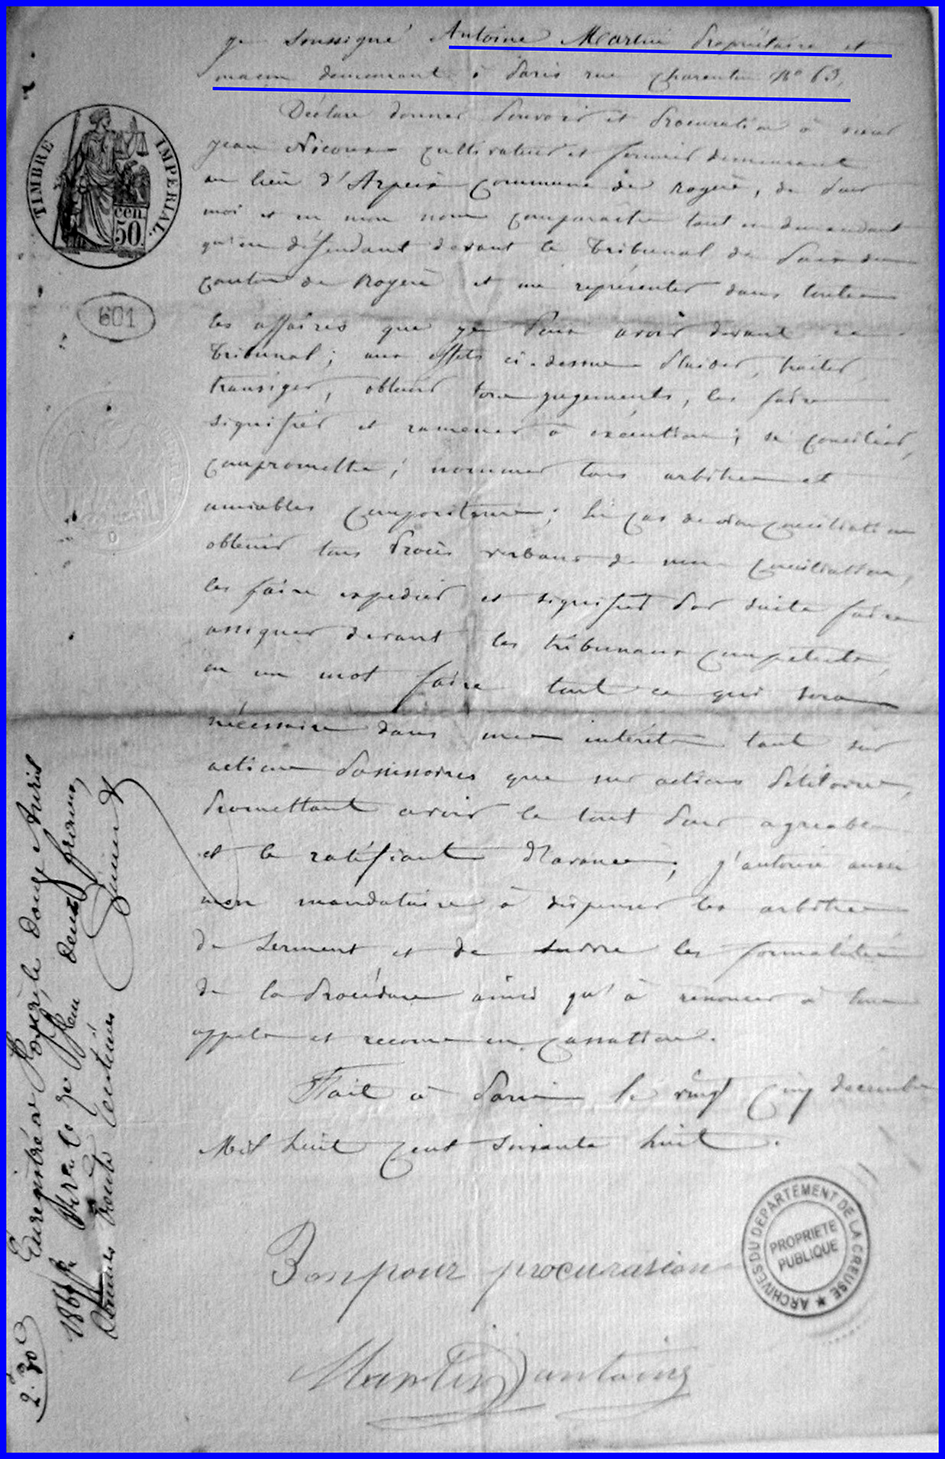 je soussigné Antoine Martin Propriétaire et
maçon demeurant à Paris rue Charenton No 63,
Déclare donner Pouvoir et Procuration à sieur
jean Nicoux cultivateur et fermier demeurant
au lieu d'Arpeix commune de royère, de Pour
moi et en mon nom comparaitre tant en demandant
qu'en défendant devant le Tribunal de Paix du
canton de Royere et me représenter dans toutes
les affaires que je Puis avoir devant ce
Tribunal; aux effets ci-dessus Plaider, traiter
transiger, obtenir tous jugements, les faire
signifier et ramener à exécution; se concilier,
compromettre; nommer tous arbitres et
amiables compositeurs; En cas de non conciliation
obtenir tous Procès verbaux de non conciliation,
les faire expedier et signifier Par suite faire
assigner devant les tribunaux compétents,
en un mot faire tout ce qui sera
nécessaire dans mes intérêts tant sur
actions Possessoires que sur actions Pétitoires,
Promettant avoir le tout Pour agréable
et le ratifiant d'avance; j'autorise aussi
mon mandataire à dispenser les arbitres
de Serment et de suivre les formalités
de la Procédure ainsi qu'à renoncer à tous
appels et recours en cassation.
Fait à Paris le vingt cinq decembre
Mil huit cent soixante huit.
Bon pour procurasion
Martin antoine
TIMBRE IMPERIAL.
50 cen
601
Enregistré à Royère le douze Avril
1869 deux francs,
trente centimes
2.30
ARCHIVES DU DÉPARTEMENT DE LA CREUSE
PROPRIÉTÉ
PUBLIQUE